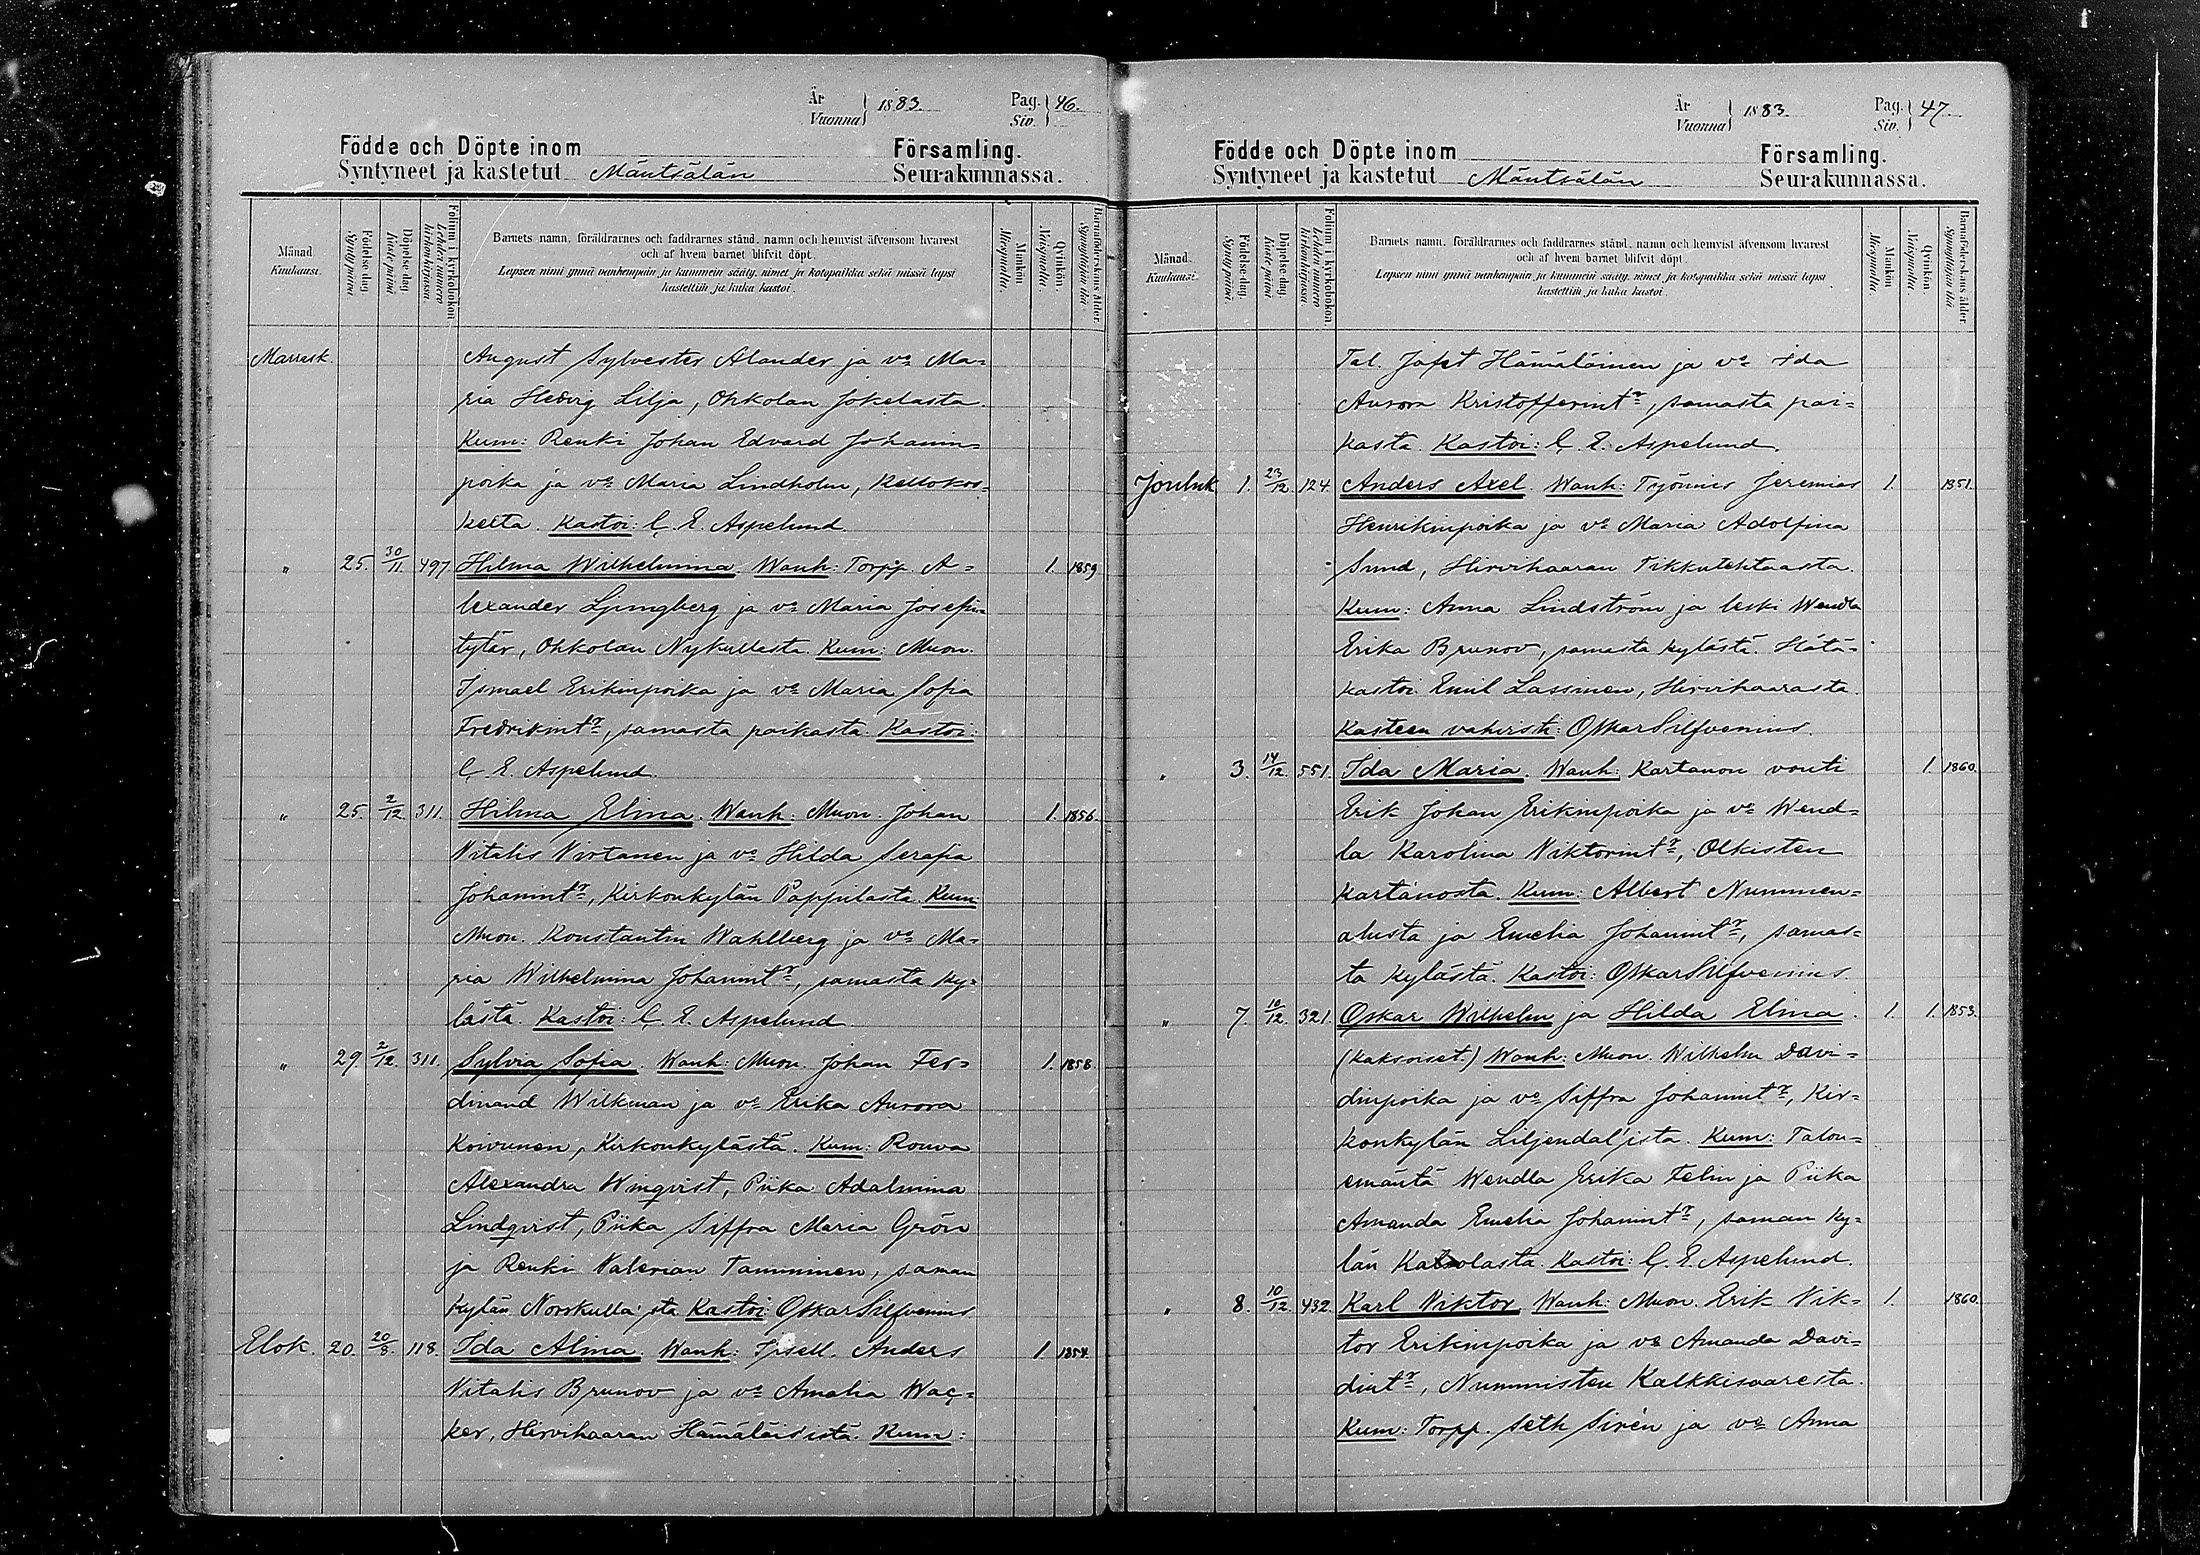 År
Vuonna } 1883.
Pag.
Siv. } 46.
Födde och Döpte inom
Församling.
Syntyneet ja kastetut Mäntsälän Seurakunnassa.
Månad.
Kuukausi.
Födelse-dag.
Syntymäpäivä.
Döpelse-dag.
Kastepäivä.
Folium i kyrkoboken.
Lehden numero kirkonkirjassa.
Barnets namn, föräldrarnes och faddrarnes stånd, namn och hemvist äfvensom hvarest
och af hvem barnet blifvit döpt.
Lapsen nimi ynnä vanhempain ja kummein sääty, nimet ja kotopaikka sekä missä lapsi
kastettiin ja kuka kastoi.
Mankön.
Miespuolta.
Qvinkön.
Naispuolta.
Barnaföderskans ålder.
Synnyttäjän ikä.
Marrask. August Sylvester Alander ja vo Ma=
ria Hedvig Lilja, Ohkolan Jokelasta.
Kum: Renki Johan Edvard Johanin=
poika ja vo Maria Lindholm, Kellokos=
kelta. Kastoi: C. E. Aspelund.
" 25. 30/11. 497. Hilma Wilhelmina. Wanh: Torpp. A= 1. 1859
lexander Ljungberg ja vo Maria Josefin
tytär, Ohkolan Nykullasta. Kum: Muon.
Ismael Erikinpoika ja vo Maria Sofia
Fredrikint:r, samasta paikasta. Kastoi:
C. E. Aspelund.
" 25. 2/12. 311. Hilma Elina. Wanh: Muon. Johan 1. 1856.
Vitalis Virtanen ja vo Hilda Serafia
Johanint:r, Kirkonkylän Pappilasta. Kum:
Muon. Konstantin Wahlberg ja vo Ma=
ria Wilhelmina Johanint:r, samasta ky=
lästä. Kastoi: C. E. Aspelund.
" 29. 2/12. 311. Sylvia Sofia. Wanh: Muon. Johan Fer= 1. 1858.
dinand Wilkman ja vo Erika Aurora
Koivunen, Kirkonkylästä. Kum: Rouva
Alexandra Winqvist, Piika Adalmina
Lindqvist, Piika Siffra Maria Grön
ja Renki Valerian Tamminen, saman
kylän Norrkulla'sta. Kastoi: Oskar Silfvenius.
Elok. 20. 20/8. 118. Ida Alina. Wanh: Itsell. Anders 1. 1854.
Vitalis Brunov ja vo Amalia Wac=
ker, Hirvihaaran Hämäläisistä. Kum:
År
Vuonna } 1883.
Pag.
Siv. } 47.
Födde och Döpte inom
Församling.
Syntyneet ja kastetut Mäntsälän Seurakunnassa.
Månad.
Kuukausi.
Födelse-dag.
Syntymäpäivä.
Döpelse-dag.
Kastepäivä.
Folium i kyrkoboken.
Lehden numero kirkonkirjassa.
Barnets namn, föräldrarnes och faddrarnes stånd, namn och hemvist äfvensom hvarest
och af hvem barnet blifvit döpt.
Lapsen nimi ynnä vanhempain ja kummein sääty, nimet ja kotopaikka sekä missä lapsi
kastettiin ja kuka kastoi.
Mankön.
Miespuolta.
Qvinkön.
Naispuolta.
Barnaföderskans ålder.
Synnyttäjän ikä.
Tal. Jafet Hämäläinen ja vo Ida
Aurora Kristofferint:r, samasta pai=
kasta. Kastoi: C. E. Aspelund.
Jouluk 1. 23/12. 124. Anders Axel. Wanh: Työmies Jeremias 1. 1851.
Henrikinpoika ja vo Maria Adolfina
Sund, Hirvihaaran Tikkutehtaasta.
Kum: Anna Lindström ja leski Wendla
Erika Brunov, samasta kylästä. Hätä=
kastoi Emil Lassinen, Hirvihaarasta.
Kasteen vahvisti: Oskar Silfvenius.
" 3. 14/12. 551. Ida Maria. Wanh: Kartanon vouti 1. 1860.
Erik Johan Erikinpoika ja vo Wend=
la Karolina Viktorint:r, Olkisten
kartanosta. Kum: Albert Nummen=
alusta ja Emelia Johanint:r, samas=
ta kylästä. Kastoi: Oskar Silfvenius.
" 7. 10/12. 321. Oskar Wilhelm ja Hilda Elina. 1. 1. 1853.
(kaksoiset.) Wanh: Muon. Wilhelm Davi=
dinpoika ja vo Siffra Johanint:r, Kir=
konkylän Liljendal'ista. Kum: Talon=
emäntä Wendla Erika Felin ja Piika
Amanda Emelia Johanint:r, saman ky=
län Katolasta. Kastoi: C. E. Aspelund.
" 8. 10/12. 432. Karl Viktor. Wanh: Muon. Erik Vik= 1. 1860.
tor Erikinpoika ja vo Amanda Davi=
dint:r, Nummisten Kalkkisaaresta.
Kum: Torpp. Seth Sirén ja vo Anna